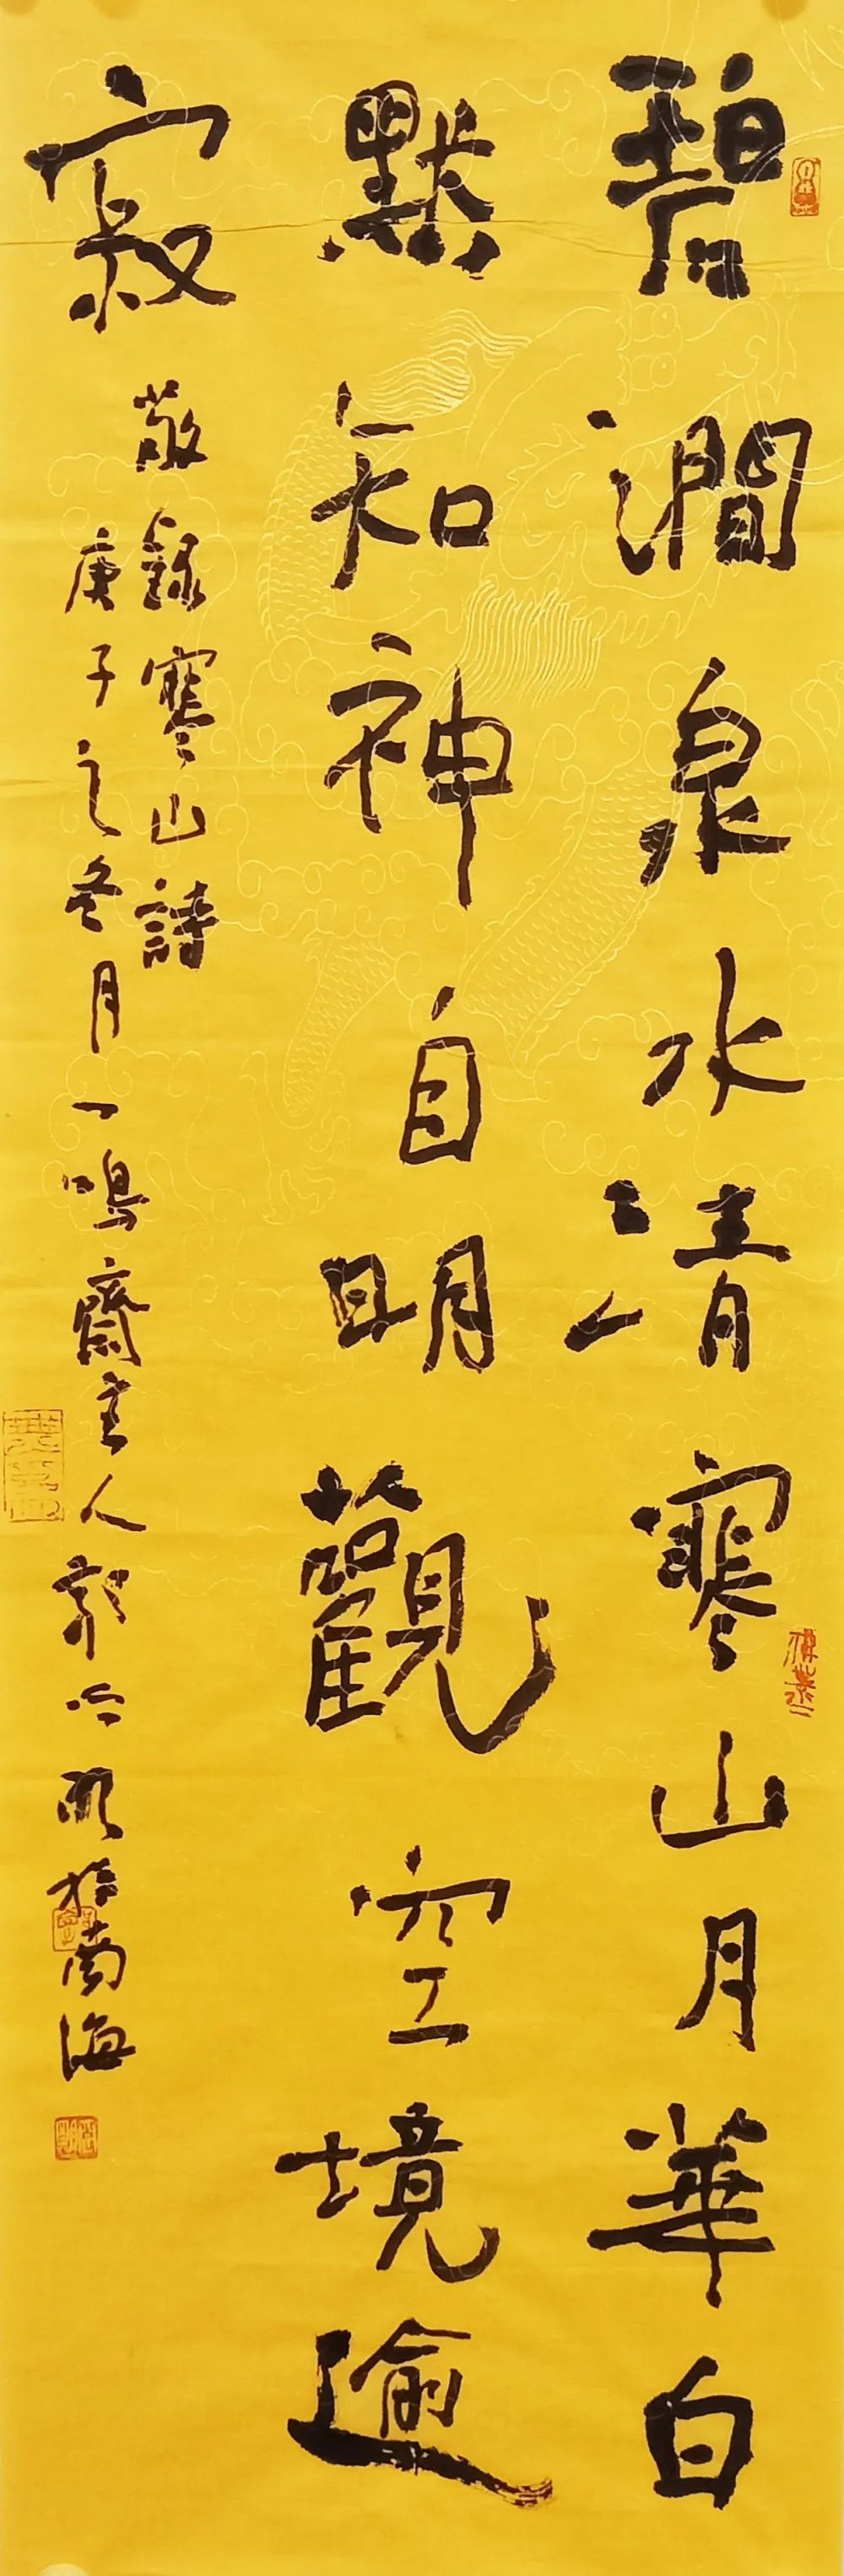 碧澗泉水清寒山月華白
默知神自明觀空境逾
寂
敬錄寒山詩
庚子之冬月一鳴齋主人郭吟歌於南海